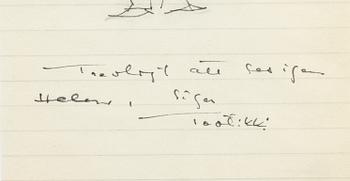 Trevligt att se igen
Helene, Säger
Tooticki